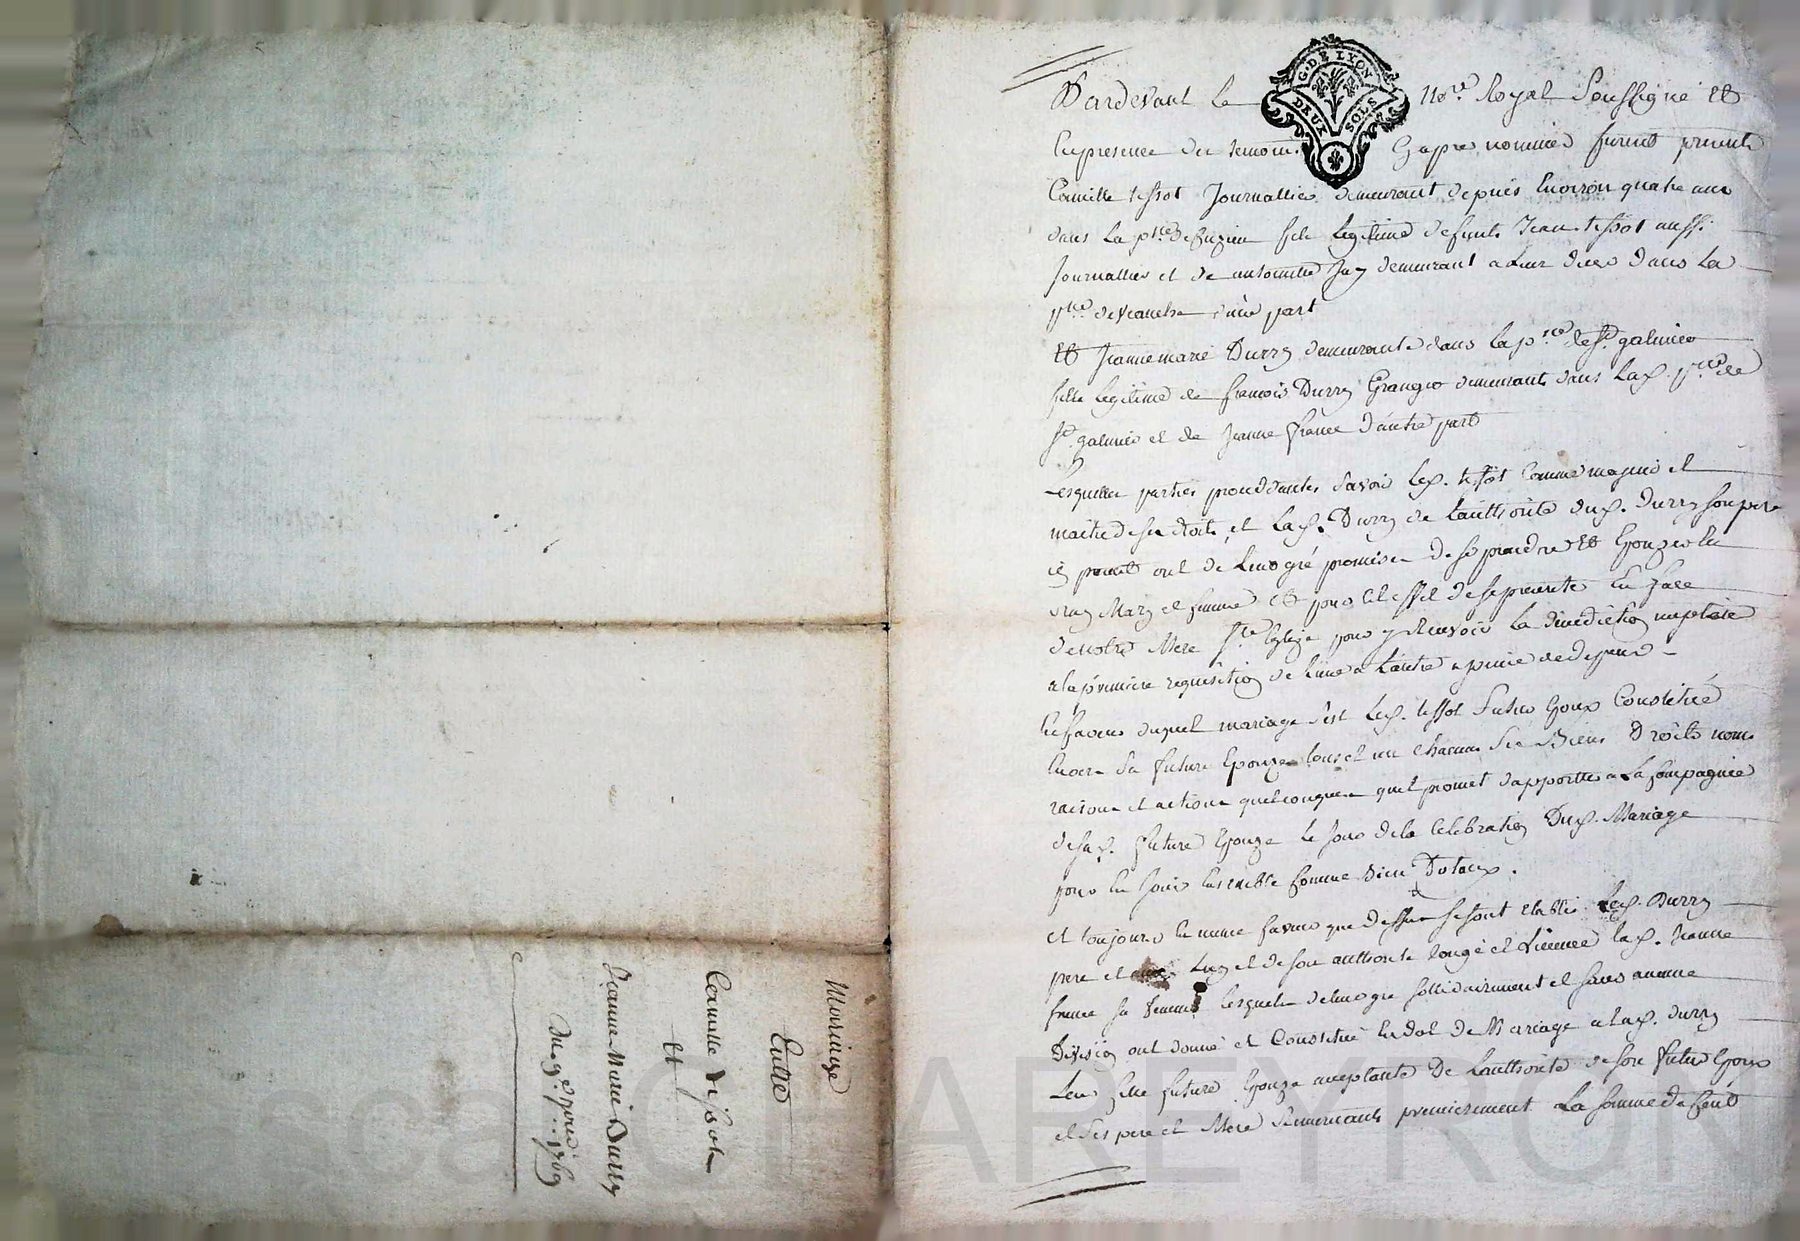 G. DE LYON
DEUX SOLS
Pardevant Le No.re Royal Soussigné Et
En presence des temoins Cy apres nommés furent presents
Camille tissot Journallier demeurant depuis Environ quatre ans
dans La p.sse de fils Legitime defunt Jean tissot aussi
Journallier et de antoinette demeurant a Leur dans La
p.sse d'une part
Et Jeanne marie Durry demeurante dans La p.sse de S.t galmier
fille Legitime de francois Durry Granger demeurant dans Lad. p.sse de
S.t galmier et de Jeanne france d'autre part
Lesquelles parties procedantes Savoir Led. tissot Comme majeur et
maitre de ses droits et Lad. Durry de Lauthorité dud. durry son pere
ont de Leur gré promis de se prendre Et Epouzer En
vray Mary et femme Et pour cet effet de se presenter En face
de notre Mere S.te Eglize pour y Recevoir La Benediction nuptiale
a la premiere requisition de L'une a L'autre a peine de depens
En faveur duquel mariage s'est Led. tissot futur Epoux Constitué
Envers Sa future Epouze tous et un chacuns Ses Biens Droits noms
raisons et actions quelconques quil promet dapporter a La Compagnie
de sad. future Epouze Le jour de la Celebration Dud. Mariage
pour En Jouir Ensemble Comme Biens Dotaux.
et toujours En meme faveur que dessus se sont Etablis Led. Durry
pere et Luy et de son authorité Lad. Jeanne
france sa femme Lesquels de leur gré sollidairement et sans aucune
Division ont donné et Constitué En dot de Mariage a Lad. durry
Leur fille future Epouze acceptante de Lauthorité de son futur Epoux
et Ses pere et Mere premierement La somme de Cent
Mariage
Entre
Camille tissot
Et
Jeanne Marie Durry
Du 9.e 1769
CHAREYRON